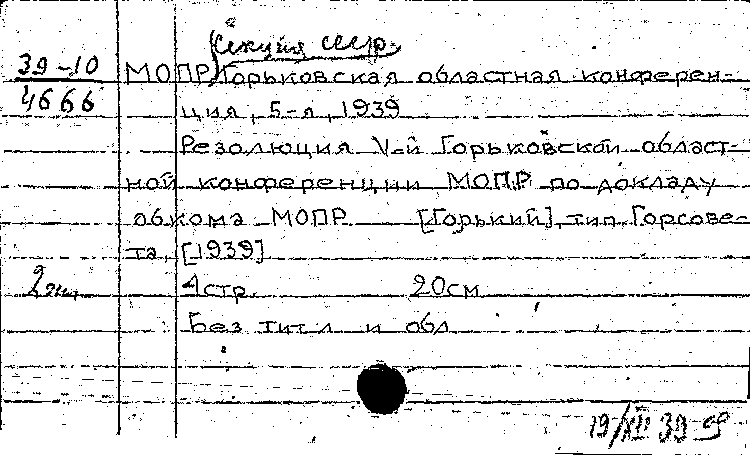 Секция СССР.
39-10 МОПР. Горьковская областная конферен-
4666 ция, 5-я, 1939
Резолюция V-й Горьковской област-
ной конференции МОПР по докладу
обкома МОПР [Горький], тип. Горсове-
та, [1939]
2 экз. 4 стр. 20 см
Без тит. л. и обл.
19/XII 39